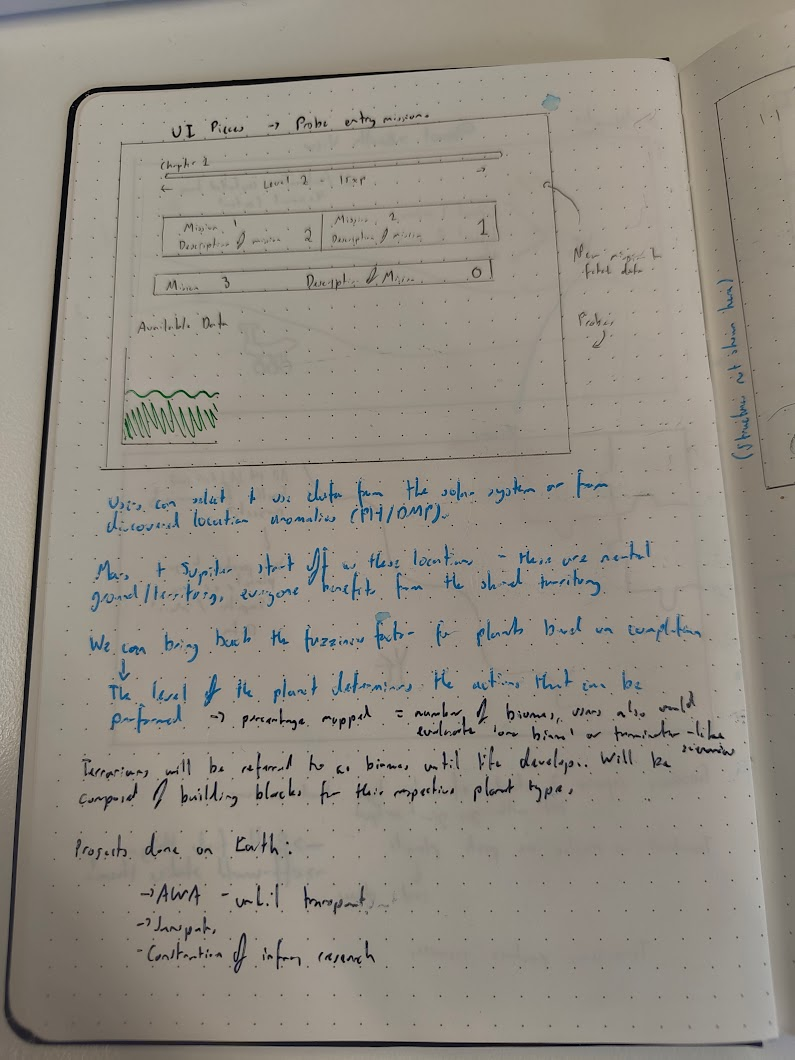 UI Pieces → Probe entry missions
Chapter 2
← Level 2 - 15xp →
Mission 1
Description of mission 2
Mission 2
Description of mission 1
Mission 3 Description of Mission 0
New mission &
fetch data
Probes
Available Data
Users can select to use data from the solar system or from
discovered location anomalies (PH/DMP).
Mars + Jupiter start off as these locations - these are neutral
ground/territory, everyone benefits from the shared territory
We can bring back the fuzziness factor for planets based on completion
↓
The level of the planet determines the actions that can be
performed → percentage mapped = number of biomes, users also could
evaluate 'one biome' or terminator-like
scenarios
Terrariums will be referred to as biomes until life develops. Will be
composed of building blocks for their respective planet types.
Projects done on Earth:
→ AWA - until transport.
→ Janspats.
- Construction of infra research
(structures not shown here)
1.1